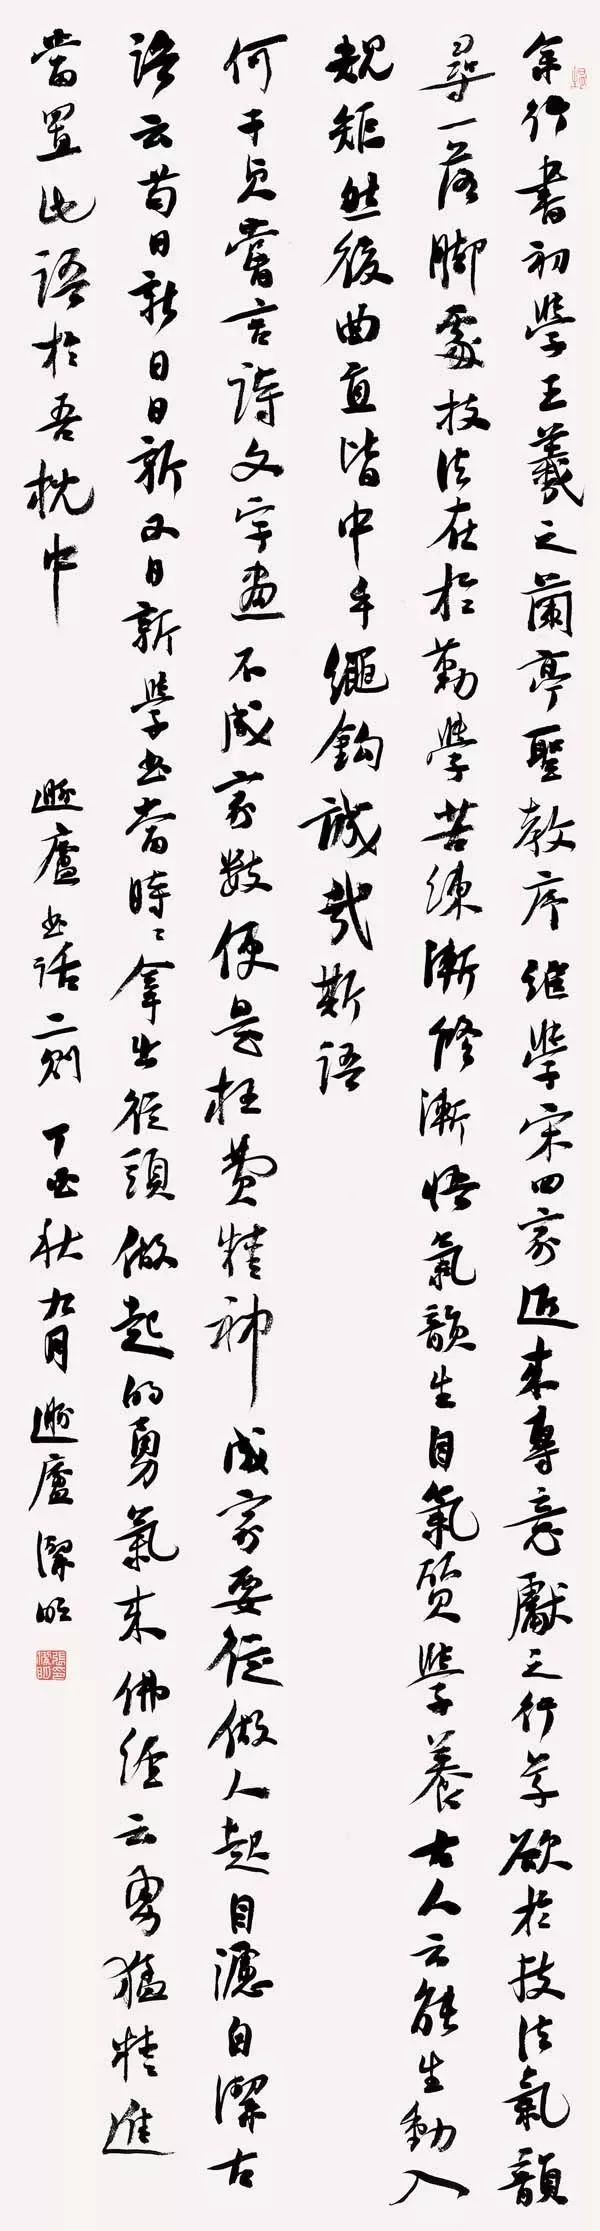 余行書初學王羲之蘭亭聖教序繼學宋四家近來專意獻之行草欲於技法氣韻
尋一落腳處技法在於勤學苦練漸修漸悟氣韻生自氣質學養古人云能生動入
規矩然後曲直皆中乎繩鉤誠哉斯語
何子貞嘗言詩文字畫不成家數便是枉費精神成家要從做人起自濯自潔古
語云苟日新日日新又日新學書當時時拿出從頭做起的勇氣來佛經云勇猛精進
當置此語於吾枕中
遯廬書話二則 丁酉秋九月遯廬潔明